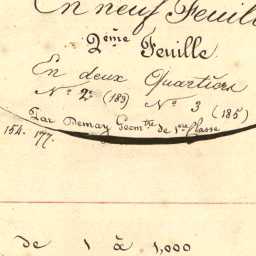 En neuf Feuill
2ème Feuille
En deux Quartiers
N° 2 (185) N° 3 (185)
Par Demay Géomtre de 1ere Classe
154. 177.
de 1 à 1,000